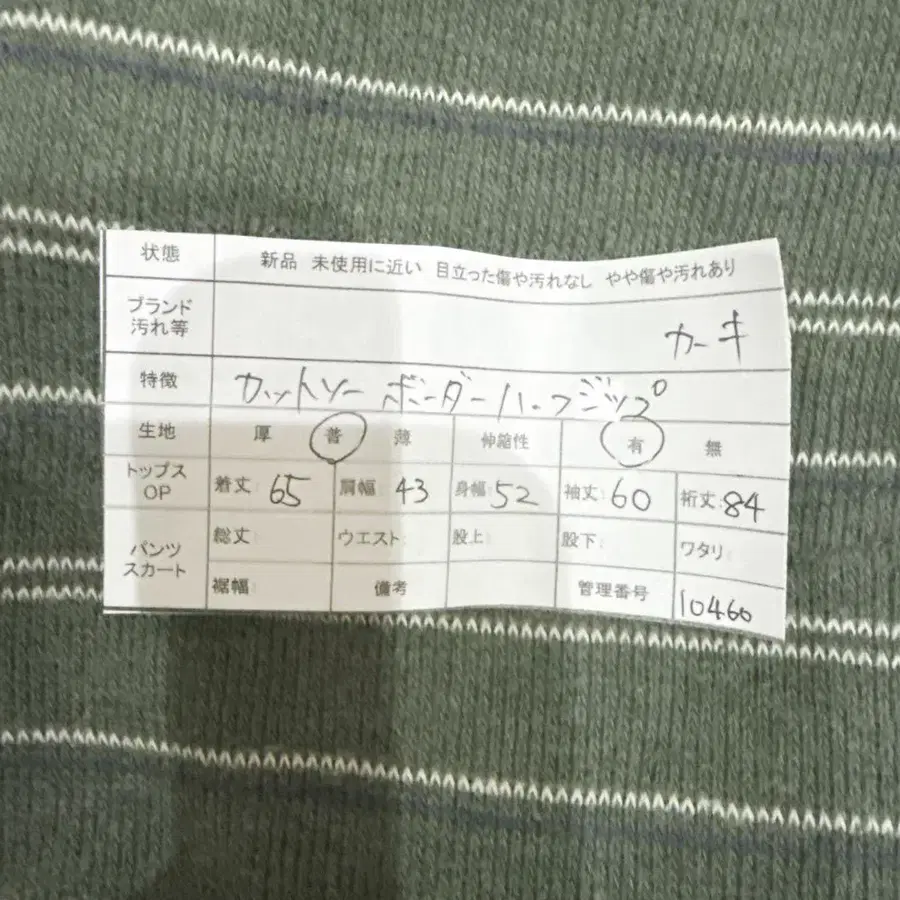 状態 新品 未使用に近い 目立った傷や汚れなし やや傷や汚れあり
ブランド
汚れ等 カーキ
特徴 カットソー ボーダーハーフジップ
生地 厚 普 薄 伸縮性 有 無
トップス
OP 着丈: 65 肩幅: 43 身幅: 52 袖丈: 60 裄丈: 84
パンツ
スカート 総丈: ウエスト: 股上: 股下: ワタリ:
裾幅: 備考 管理番号 10460